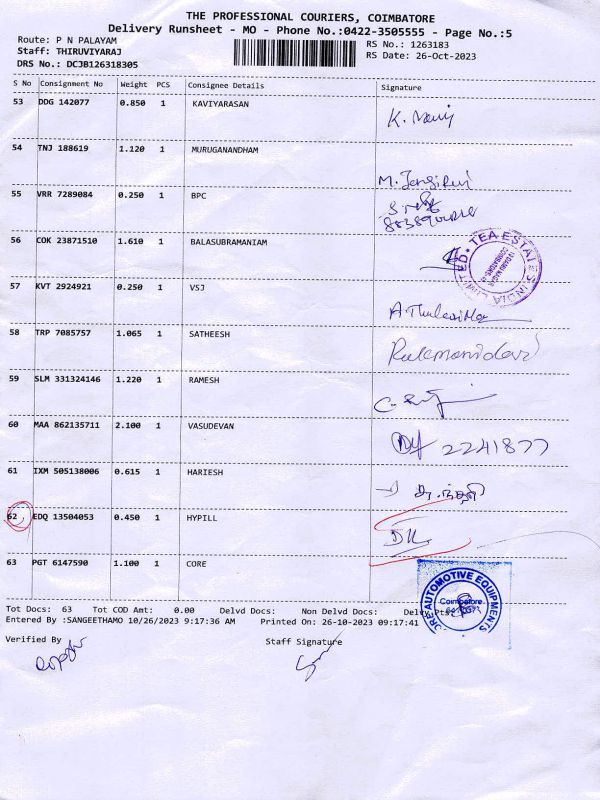 THE PROFESSIONAL COURIERS, COIMBATORE
Delivery Runsheet - MO - Phone No.:0422-3505555 - Page No.:5
Route: P N PALAYAM
Staff: THIRUVIYARAJ
DRS No.: DCJB126318305
RS No.: 1263183
RS Date: 26-Oct-2023
S No Consignment No Weight PCS Consignee Details Signature
53 DDG 142077 0.850 1 KAVIYARASAN
54 TNJ 188619 1.120 1 MURUGANANDHAM
55 VRR 7289084 0.250 1 BPC
56 COK 23871510 1.610 1 BALASUBRAMANIAM
TEA ESTATES INDIA LIMITED
57 KVT 2924921 0.250 1 VSJ
58 TRP 7085757 1.065 1 SATHEESH
Rukmanidevi
59 SLM 331324146 1.220 1 RAMESH
60 MAA 862135711 2.100 1 VASUDEVAN
2241877
61 IXM 505138006 0.615 1 HARIESH
62 EDQ 13504053 0.450 1 HYPILL
63 PGT 6147590 1.100 1 CORE
CORE AUTOMOTIVE EQUIPMENTS
Coimbatore
Tot Docs: 63 Tot COD Amt: 0.00 Delvd Docs: Non Delvd Docs:
Entered By :SANGEETHAMO 10/26/2023 9:17:36 AM Printed On: 26-10-2023 09:17:41
Verified By Staff Signature